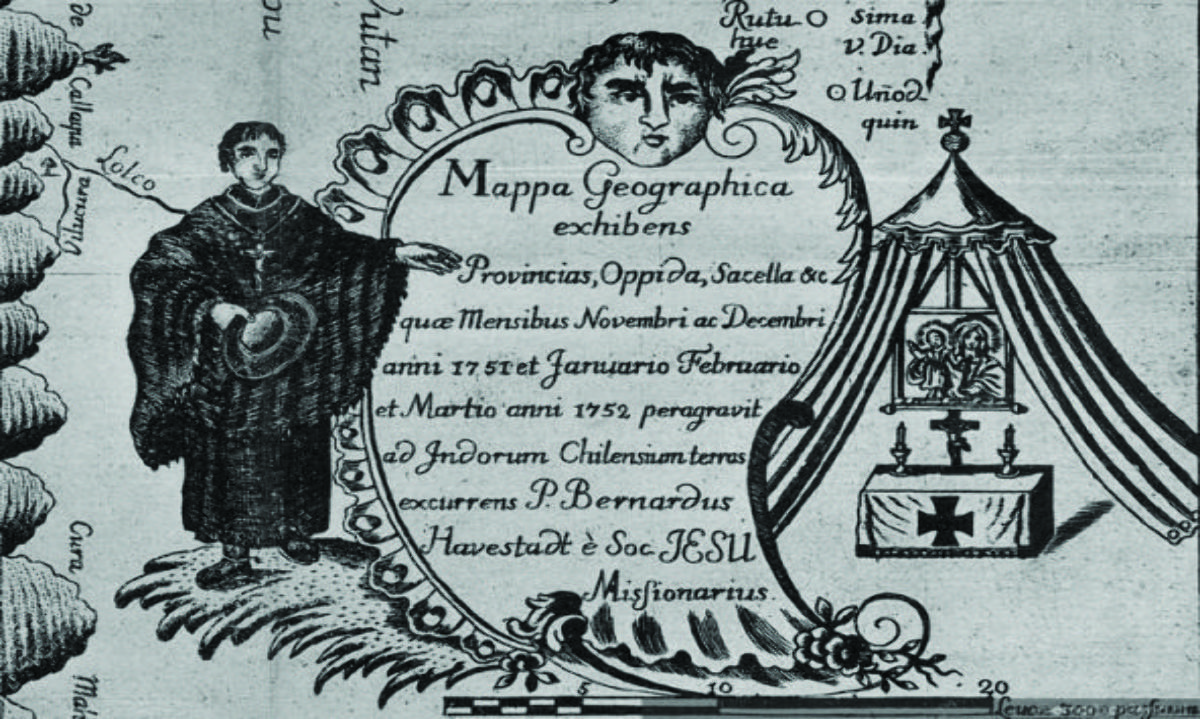 de
Callapa
Lolco
Rutu
hue
sima
v. Dia.
Uñod
quin
Mappa Geographica
exhibens
Provincias, Oppida, Sacella &c
quæ Mensibus Novembri ac Decembri
anni 1751 et Januario Februario
et Martio anni 1752 peragravit
ad Indorum Chilensium terras
excurrens P. Bernardus
Havestadt è Soc. JESU
Missionarius.
Cura
Mah
5 10 20
Leucæ 3000 passuum